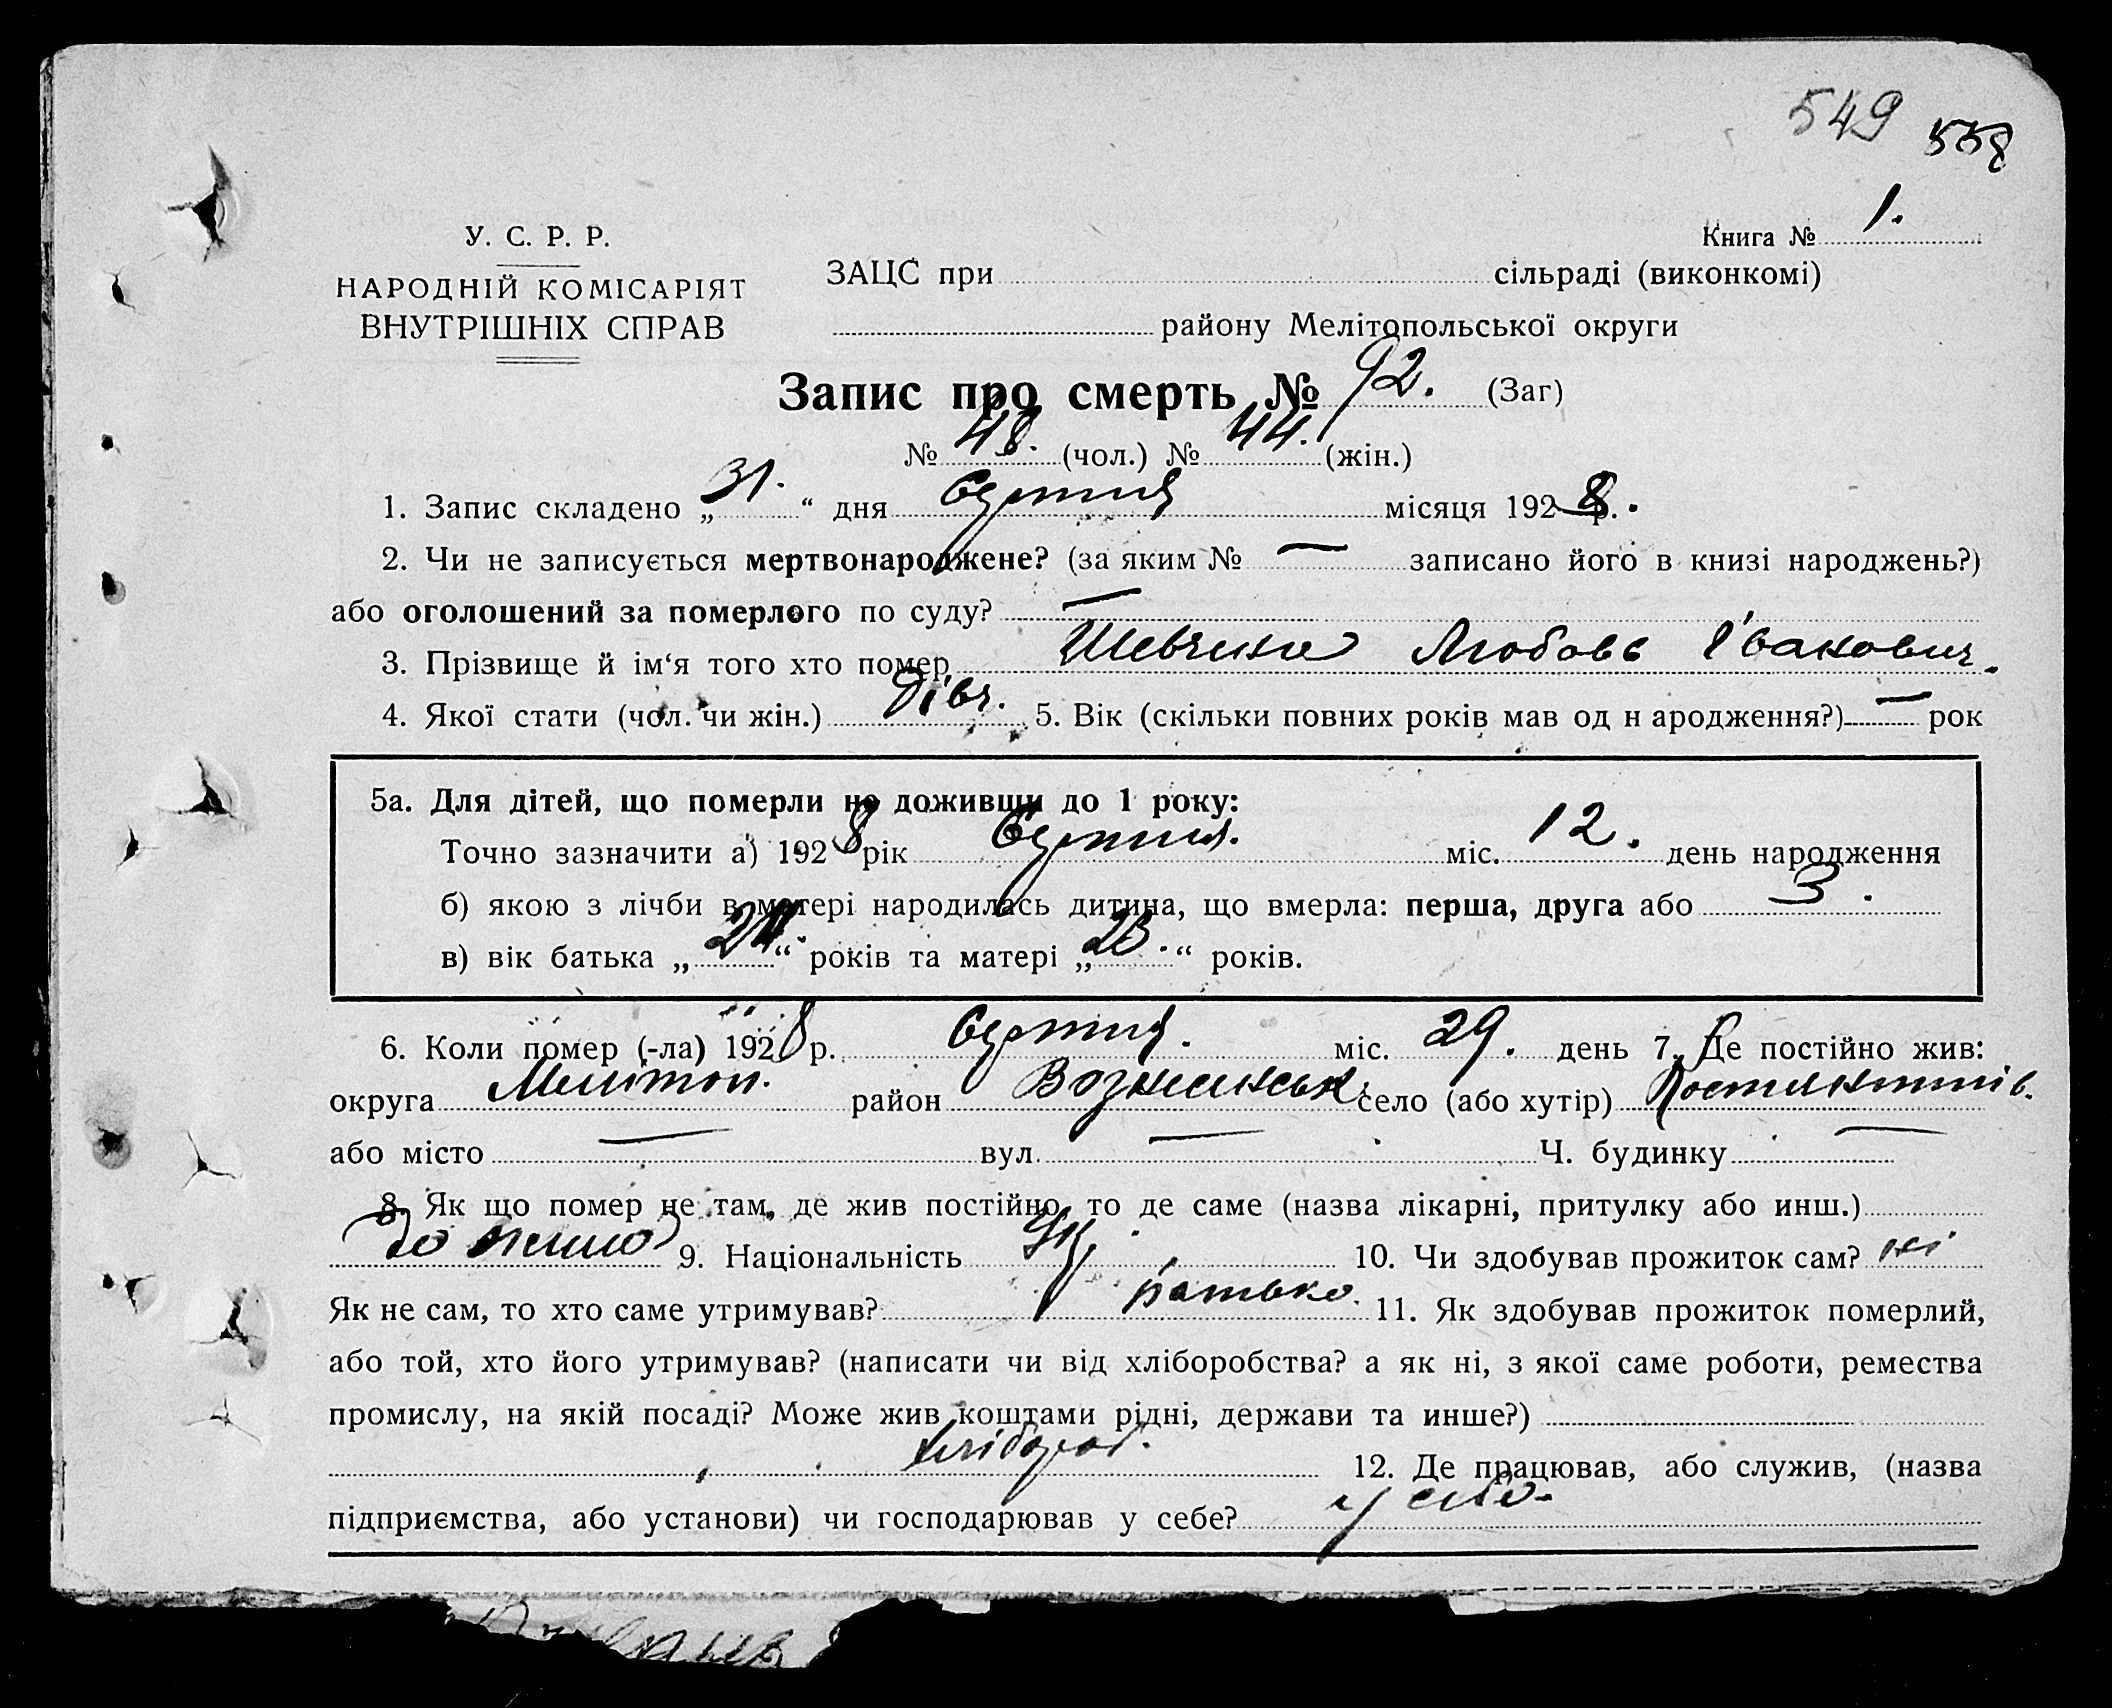 549 558
У. С. Р. Р.
НАРОДНІЙ КОМІСАРІЯТ
ВНУТРІШНІХ СПРАВ
Книга № 1.
ЗАЦС при сільраді (виконкомі)
району Мелітопольської округи
Запис про смерть № 92. (Заг)
№ 48. (чол.) № 44. (жін.)
1. Запис складено „ 31. “ дня Серпня місяця 1928 р.
2. Чи не записується мертвонароджене? (за яким № — записано його в книзі народжень?)
або оголошений за померлого по суду? —
3. Прізвище й ім‘я того хто помер Шевченко Любовь Іванович.
4. Якої стати (чол. чи жін.) Дівч. 5. Вік (скільки повних років мав од н ародження?) — рок
5а. Для дітей, що померли не доживши до 1 року:
Точно зазначити а) 1928 рік Серпня. міс. 12. день народження
б) якою з лічби в матері народилась дитина, що вмерла: перша, друга або 3.
в) вік батька „ 24. “ років та матері „ 23. “ років.
6. Коли помер (-ла) 1928 р. Серпня. міс. 29. день 7. Де постійно жив:
округа Мелітоп. район Вознесенськ село (або хутір) Костянтинів.
або місто — вул. — Ч. будинку —
8. Як що помер не там, де жив постійно, то де саме (назва лікарні, притулку або инш.)
9. Національність Укр. 10. Чи здобував прожиток сам? ні
Як не сам, то хто саме утримував? батько. 11. Як здобував прожиток померлий,
або той, хто його утримував? (написати чи від хліборобства? а як ні, з якої саме роботи, ремества
промислу, на якій посаді? Може жив коштами рідні, держави та инше?)
хлібороб. 12. Де працював, або служив, (назва
підприємства, або установи) чи господарював у себе? у себе.